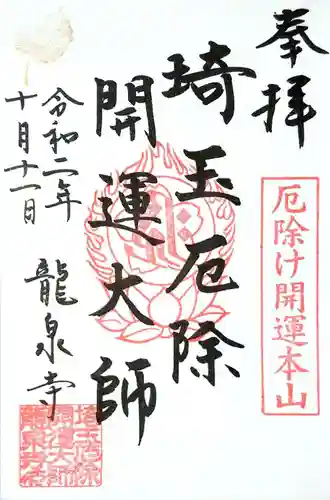 奉拝
厄除け開運本山
埼玉厄除
開運大師
令和二年
十月十一日
龍泉寺
埼玉厄除
開運大師
龍泉寺印